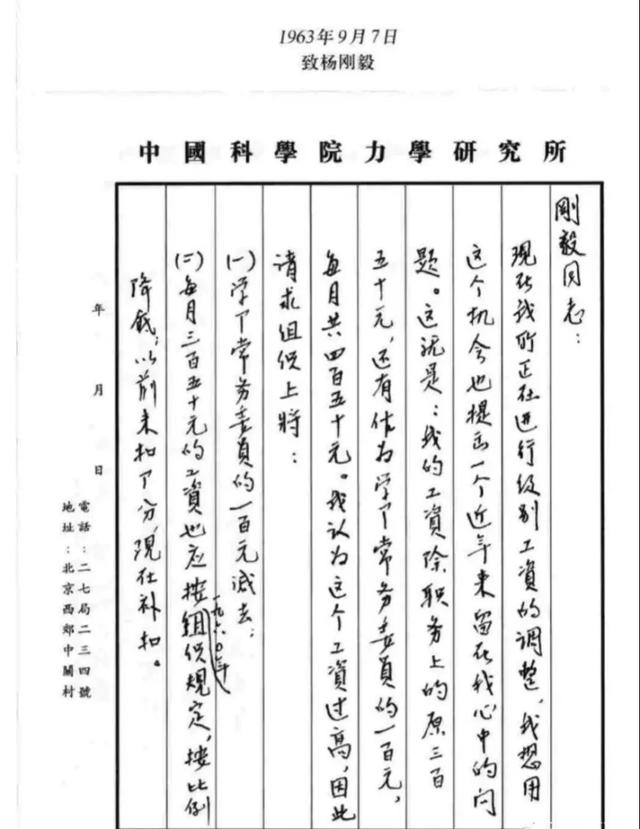 1963年9月7日
致杨刚毅
中國科學院力學研究所
剛毅同志：
现在我所正在进行级别工资的调整，我想用
这个机会也提出一个近年来留在我心中的问
题。这就是：我的工资除职务上的原三百
五十元，还有作为学部常务委员的一百元，
每月共四百五十元。我认为这个工资过高，因此
请求组织上将：
(一)学部常务委员的一百元减去；
(二)每月三百五十元的工资也应按一九六〇年组织规定，按比例
降低；以前未扣部分，现在补扣。
年 月 日
電話：二七局二三四號
地址：北京西郊中關村